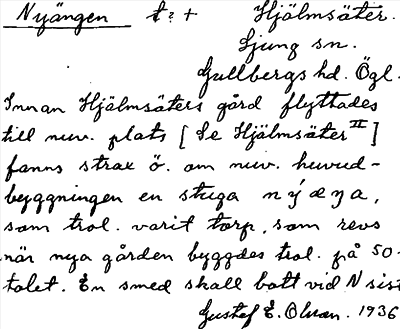 Nyängen t? + Hjälmsäter.
Ljung sn.
Gullbergs hd. Ögl.
Innan Hjälmsäters gård flyttades
till nuv. plats [Se Hjälmsäter II]
fanns strax ö. om nuv. huvud-
byggningen en stuga
som trol. varit torp, som revs
när nya gården byggdes trol. på 50-
talet. En smed skall bott vid N sist
Gustaf E. Olsson. 1936